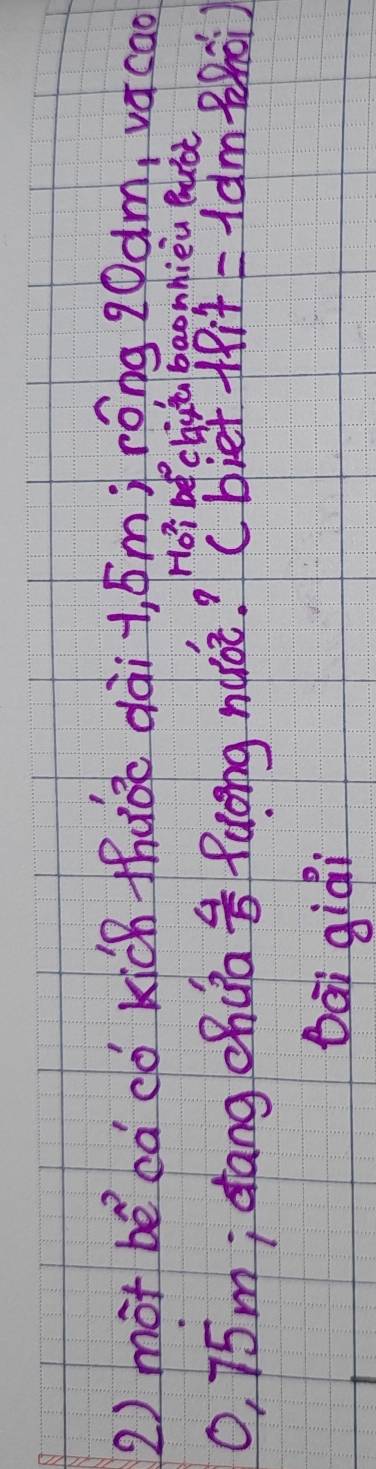 2) một bể cá có kích thước dài 1,5m; rộng 20dm, và cao
0,75m; đang chứa 4/5 lượng nước. Hỏi bể chứa bao nhiêu lít nước? (biết 1lít = 1dm khối)
Bài giải